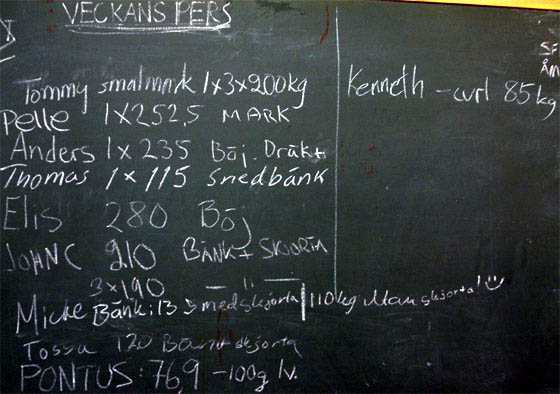 VECKANS PERS
Tommy smalmark 1x3x200kg
Pelle 1x252,5 MARK
Anders 1x235 Böj. Dräkt
Thomas 1x115 Snedbänk
Elis 280 Böj
JOHN C 210 BÄNK + SKJORTA
3x190 — " —
Micke Bänk: 13 medskjorta | 110 kg utan skjorta!
Tossa 120 Bänk skjorta
PONTUS: 76,9 -100g lv.
Kenneth - curl 85kg